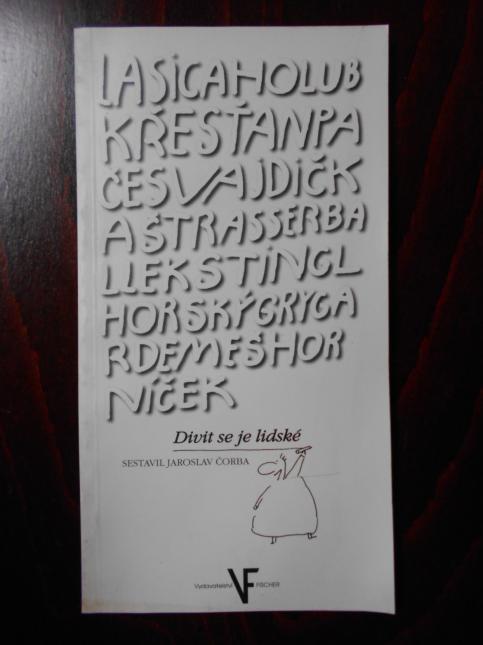 LASICAHOLUB
KŘESŤANPA
ČESVAJDIČK
AŠTRASSERBA
LLEKSTINGL
HORSKÝGRYGA
RDEMEŠHOR
NÍČEK
Divit se je lidské
SESTAVIL JAROSLAV ČORBA
Vydavatelství VF FISCHER